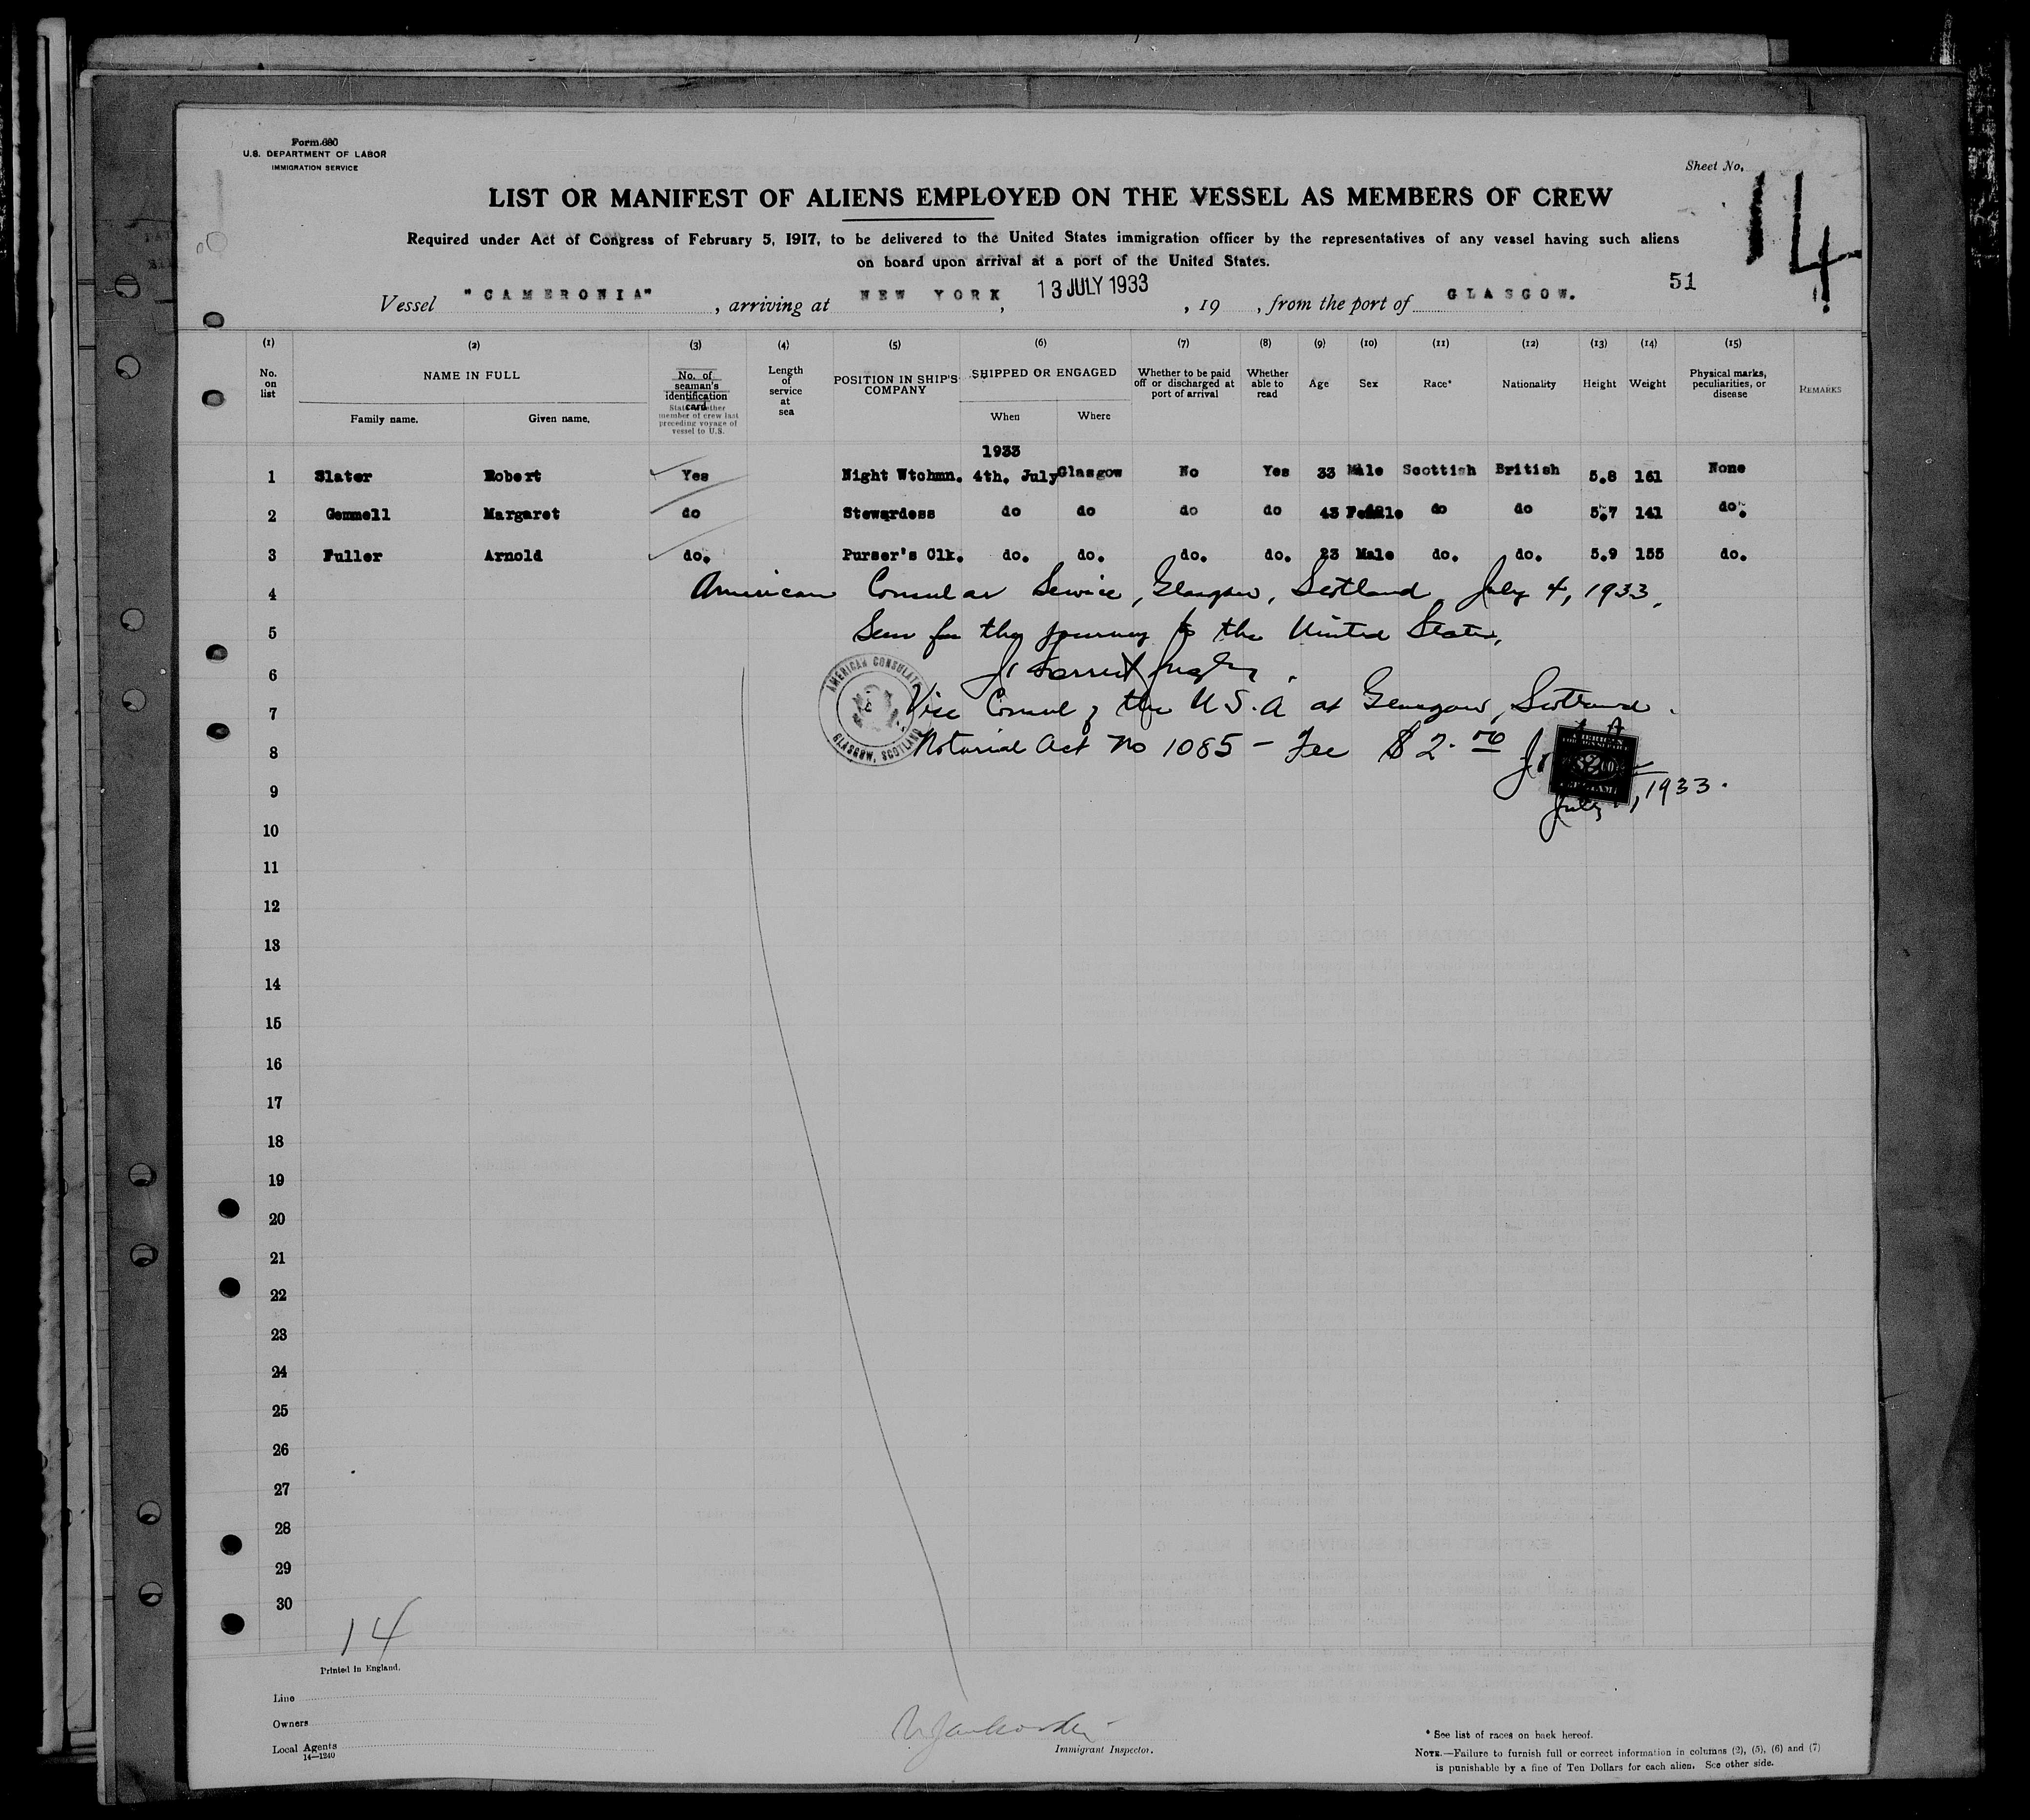 Form 680
U.S. DEPARTMENT OF LABOR
IMMIGRATION SERVICE
Sheet No.
14
LIST OR MANIFEST OF ALIENS EMPLOYED ON THE VESSEL AS MEMBERS OF CREW
Required under Act of Congress of February 5, 1917, to be delivered to the United States immigration officer by the representatives of any vessel having such aliens
on board upon arrival at a port of the United States.
51
Vessel "CAMERONIA", arriving at NEW YORK, 13 JULY 1933, 19 , from the port of GLASGOW.
(1) (2) (3) (4) (5) (6) (7) (8) (9) (10) (11) (12) (13) (14) (15)
No. on list NAME IN FULL Family name. Given name. No. of seaman's identification card State whether member of crew last preceding voyage of vessel to U.S. Length of service at sea POSITION IN SHIP'S COMPANY SHIPPED OR ENGAGED When Where Whether to be paid off or discharged at port of arrival Whether able to read Age Sex Race* Nationality Height Weight Physical marks, peculiarities, or disease REMARKS
1933
1 Slater Robert Yes Night Wtchmn. 4th. July Glasgow No Yes 33 Male Scottish British 5.8 161 None
2 Gemmell Margaret do Stewardess do do do do 43 Female do do 5.7 141 do.
3 Fuller Arnold do. Purser's Clk. do. do. do. do. 23 Male do. do. 5.9 155 do.
4 American Consular Service, Glasgow, Scotland July 4, 1933.
5 Seen for the journey to the United States,
6
AMERICAN CONSULATE
GLASGOW, SCOTLAND
7 Vice Consul of the U.S.A at Glasgow, Scotland.
8 Notarial Act No 1085 - Fee $2.00
9 July , 1933.
10
11
12
13
14
15
16
17
18
19
20
21
22
23
24
25
26
27
28
29
30
14
Printed in England.
Line
Owners
Local Agents
14—1240
Immigrant Inspector.
* See list of races on back hereof.
NOTE.—Failure to furnish full or correct information in columns (2), (5), (6) and (7)
is punishable by a fine of Ten Dollars for each alien. See other side.